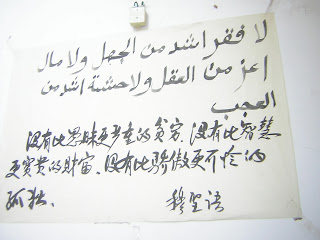 لا فقر اشد من الجهل ولا مال
اعز من العقل ولا حشة اشد من
العجب
没有比愚昧更严重的贫穷、没有比智慧
更宝贵的财富、没有比骄傲更不怜的
孤独. 穆圣语